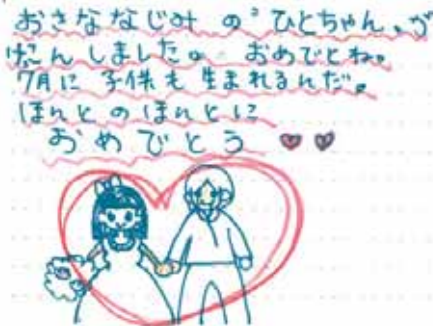 おさななじみ の"ひとちゃん"が
けっこんしました。 おめでとね。
7月に 子供も 生まれるんだ。
ほんと の ほんとに
おめでとう ♥ ♥